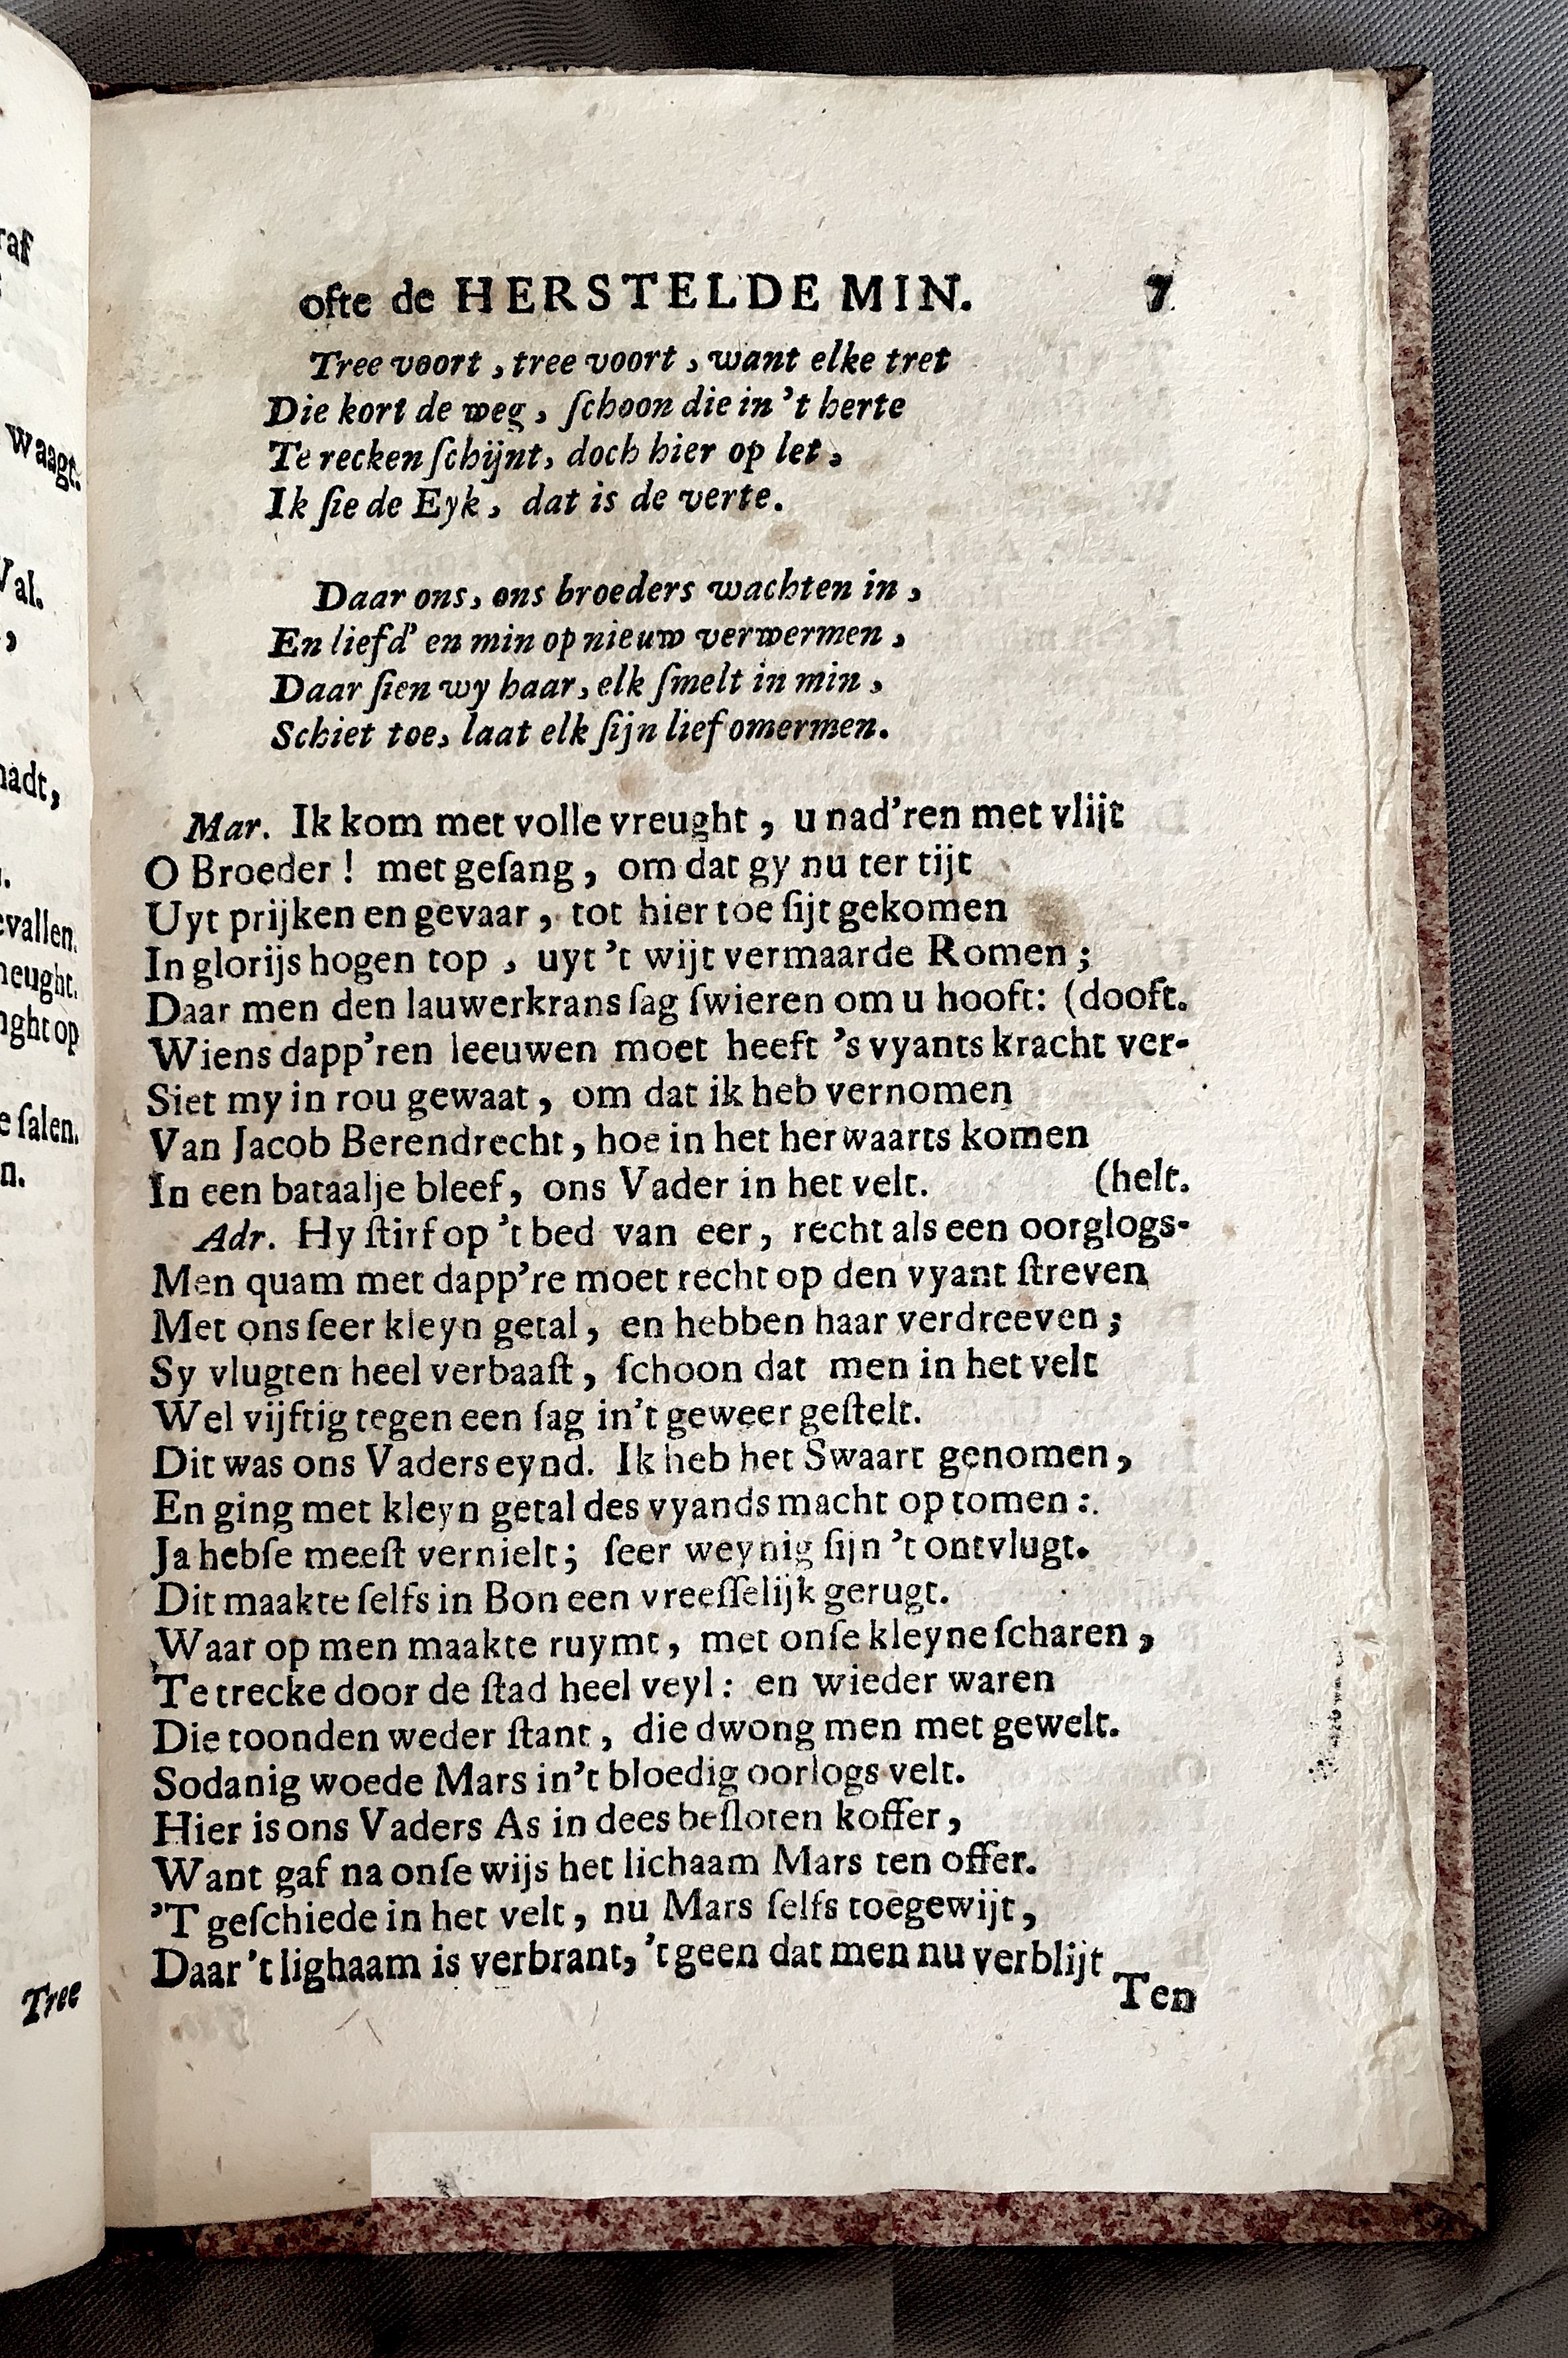 raf
waagt.
Val.
,
nadt,
evallen.
neught.
nght op
e ſalen.
n.
Tree
ofte de HERSTELDE MIN. 7
Tree voort, tree voort, want elke tret
Die kort de weg, ſchoon die in 't herte
Te recken ſchijnt, doch hier op let,
Ik ſie de Eyk, dat is de verte.
Daar ons, ons broeders wachten in,
En liefd' en min op nieuw verwermen,
Daar ſien wy haar, elk ſmelt in min,
Schiet toe, laat elk ſijn lief omermen.
Mar. Ik kom met volle vreught, u nad'ren met vlijt
O Broeder! met geſang, om dat gy nu ter tijt
Uyt prijken en gevaar, tot hier toe ſijt gekomen
In glorijs hogen top, uyt 't wijt vermaarde Romen;
Daar men den lauwerkrans ſag ſwieren om u hooft: (dooft.
Wiens dapp'ren leeuwen moet heeft 's vyants kracht ver-
Siet my in rou gewaat, om dat ik heb vernomen
Van Jacob Berendrecht, hoe in het herwaarts komen
In een bataalje bleef, ons Vader in het velt. (helt.
Adr. Hy ſtirf op 't bed van eer, recht als een oorglogs-
Men quam met dapp're moet recht op den vyant ſtreven
Met ons ſeer kleyn getal, en hebben haar verdreeven;
Sy vlugten heel verbaaſt, ſchoon dat men in het velt
Wel vijftig tegen een ſag in't geweer geſtelt.
Dit was ons Vaders eynd. Ik heb het Swaart genomen,
En ging met kleyn getal des vyands macht op tomen:
Ja hebſe meeſt vernielt; ſeer weynig ſijn 't ontvlugt.
Dit maakte ſelfs in Bon een vreeſſelijk gerugt.
Waar op men maakte ruymt, met onſe kleyne ſcharen,
Te trecke door de ſtad heel veyl: en wieder waren
Die toonden weder ſtant, die dwong men met gewelt.
Sodanig woede Mars in't bloedig oorlogs velt.
Hier is ons Vaders As in dees beſloten koffer,
Want gaf na onſe wijs het lichaam Mars ten offer.
'T geſchiede in het velt, nu Mars ſelfs toegewijt,
Daar 't lighaam is verbrant, 't geen dat men nu verblijt
Ten